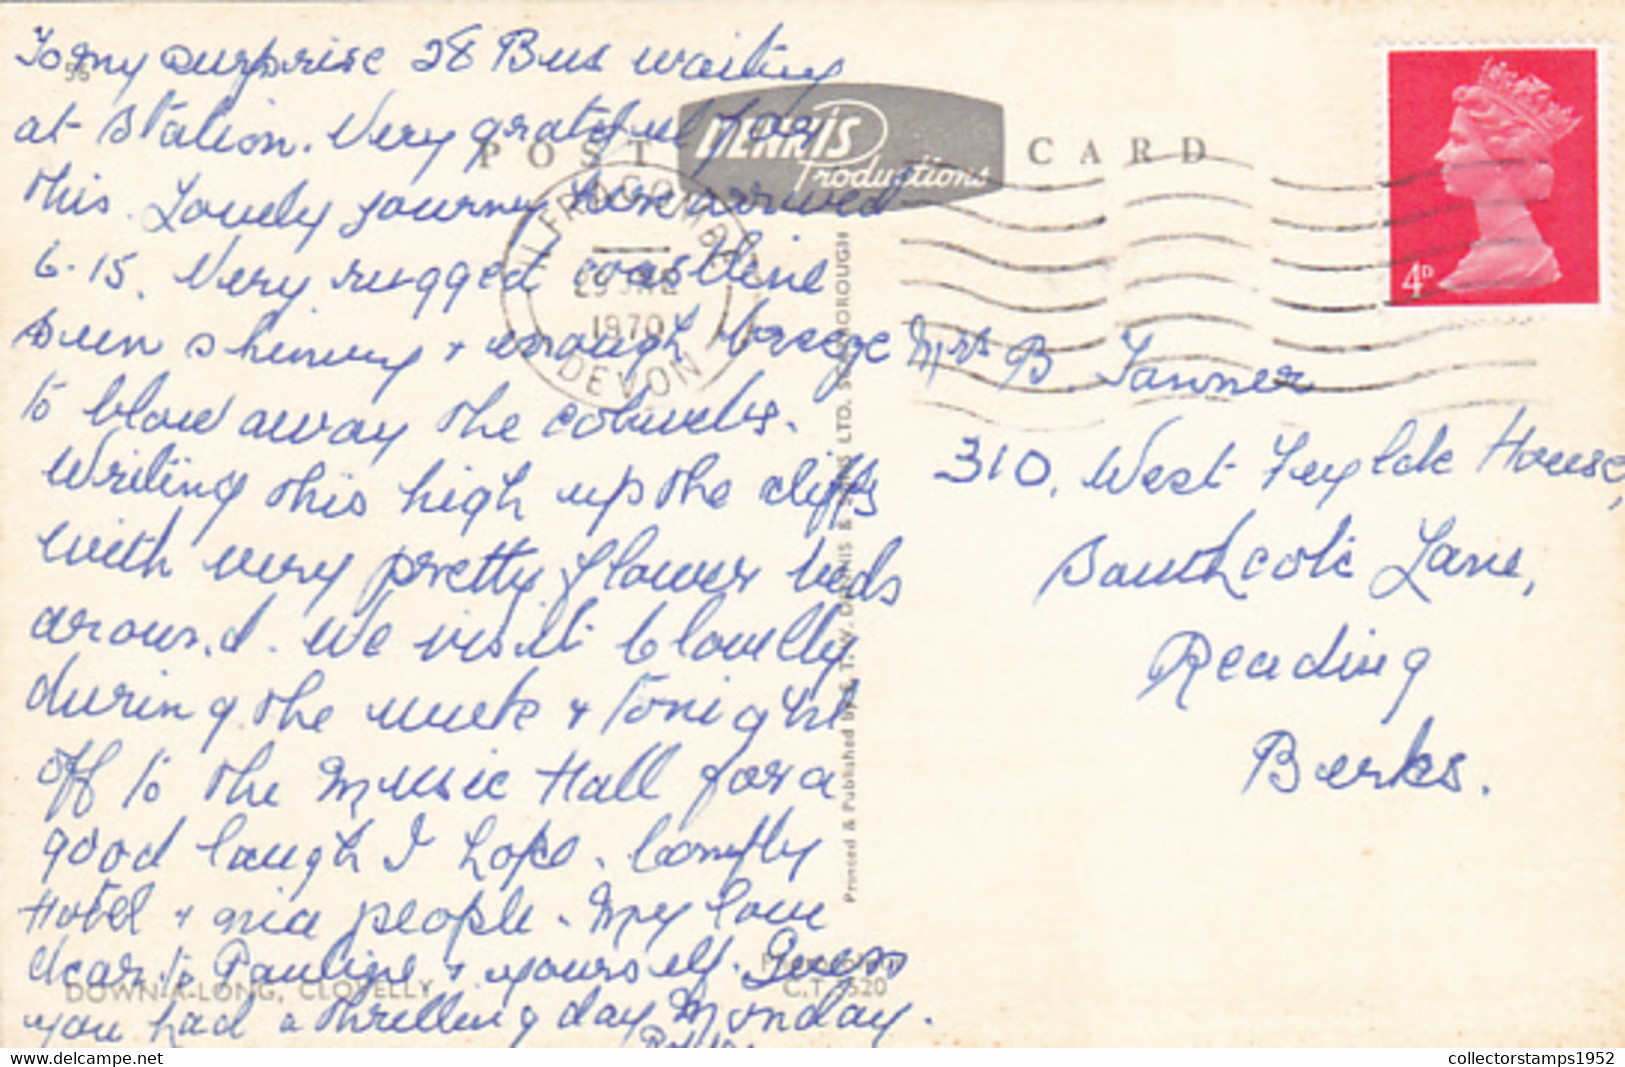 To my surprise 28 Bus waiting
at Station. Very grateful for
this. Lovely journey here arrived
6.15. Very rugged coastline
sun shining & enough breeze
to blow away the cobwebs.
Writing this high up the cliffs
with very pretty flower beds
around. We visit Clovelly
during the week & tonight
off to the Music Hall for a
good laugh I hope. Comfy
Hotel & nice people. My love
dear to Pauline & yourself. Guess
you had a thrilling day Monday.
96
POST CARD
DENNIS
Productions
ILFRACOMBE
1970
DEVON
4D
Mrs B Tanner
310, West House,
Southcote Lane,
Reading
Berks.
Printed & Published by E. T. W. DENNIS & SONS LTD. SCARBOROUGH
DOWN-A-LONG, CLOVELLY
C.T. 520
delcampe.net
collectorstamps1952